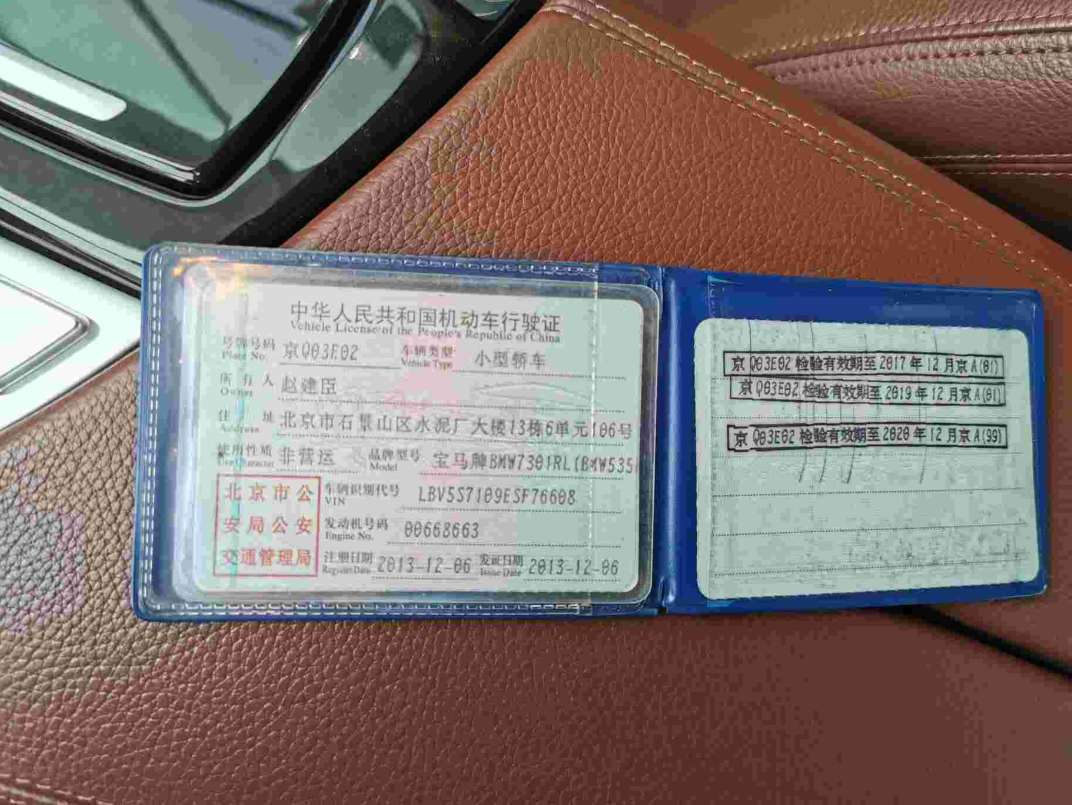 中华人民共和国机动车行驶证
Vehicle License of the People's Republic of China
号牌号码 京Q03E02 车辆类型 小型轿车
Plate No. Vehicle Type
所有人 赵建臣
Owner
住址 北京市石景山区水泥厂大楼13栋6单元106号
Address
使用性质 非营运 品牌型号 宝马牌BMW7301RL(BMW535
Use Character Model
北京市公安局公安交通管理局
车辆识别代号 LBV5S7109ESF76608
VIN
发动机号码 00668663
Engine No.
注册日期 2013-12-06 发证日期 2013-12-06
Register Date Issue Date
京Q03E02 检验有效期至2017年12月京A(01)
京Q03E02 检验有效期至2019年12月京A(01)
京Q03E02 检验有效期至2020年12月京A(99)